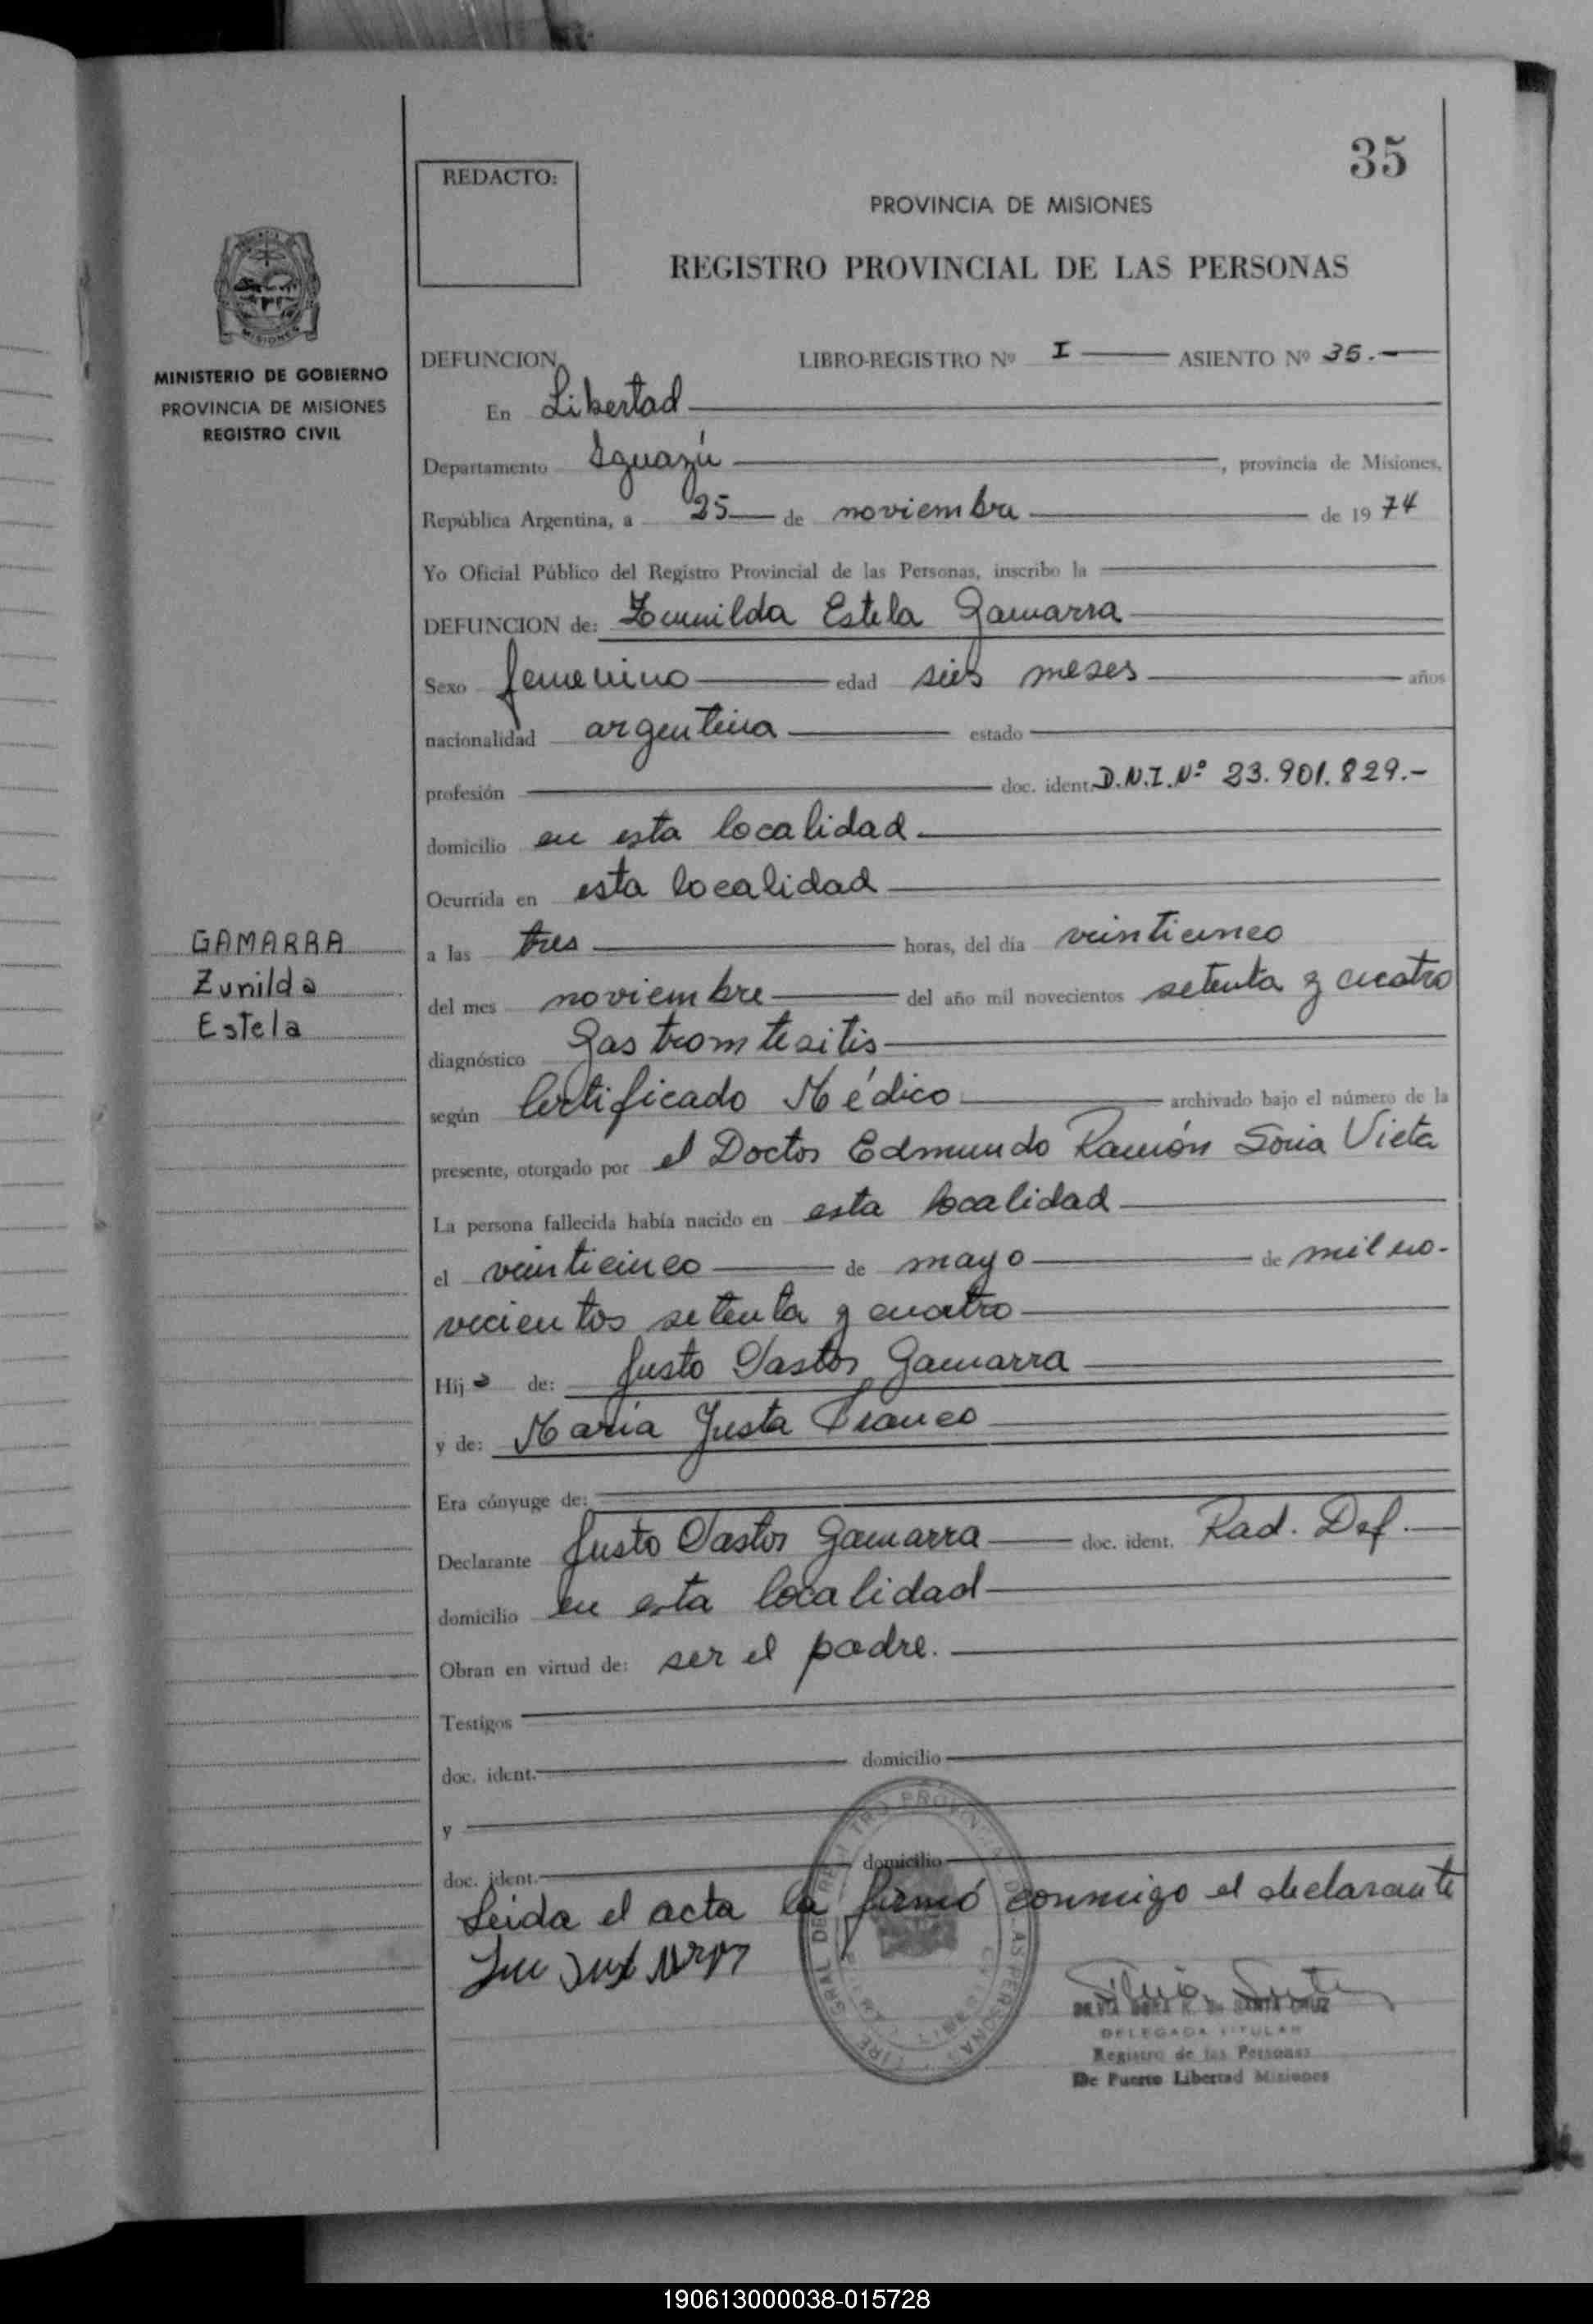 35
REDACTO:
PROVINCIA DE MISIONES
REGISTRO PROVINCIAL DE LAS PERSONAS
MISIONES
MINISTERIO DE GOBIERNO
PROVINCIA DE MISIONES
REGISTRO CIVIL
DEFUNCION LIBRO-REGISTRO Nº I ASIENTO Nº 35.-
En Libertad
Departamento Iguazú, provincia de Misiones,
República Argentina, a 25 de noviembre de 1974
Yo Oficial Público del Registro Provincial de las Personas, inscribo la
DEFUNCION de: Zunilda Estela Gamarra
Sexo femenino edad seis meses años
nacionalidad argentina estado
profesión doc. ident. D.N.I. Nº 23.901.829.-
domicilio en esta localidad
Ocurrida en esta localidad
GAMARRA
Zunilda
Estela
a las tres horas, del día veinticinco
del mes noviembre del año mil novecientos setenta y cuatro
diagnóstico
según Certificado Médico archivado bajo el número de la
presente, otorgado por el Doctor Edmundo Ramón Soria Vieta
La persona fallecida había nacido en esta localidad
el veinticinco de mayo de mil no-
vecientos setenta y cuatro
Hija de: Justo Pastor Gamarra
y de: María Justa Franco
Era cónyuge de:
Declarante Justo Pastor Gamarra doc. ident. Rad. Def.
domicilio en esta localidad
Obran en virtud de: ser el padre.
Testigos
doc. ident. domicilio
y
doc. ident. domicilio
Leida el acta la firmó conmigo el declarante
SANTA CRUZ
DELEGADA TITULAR
Registro de las Personas
De Puerto Libertad Misiones
190613000038-015728